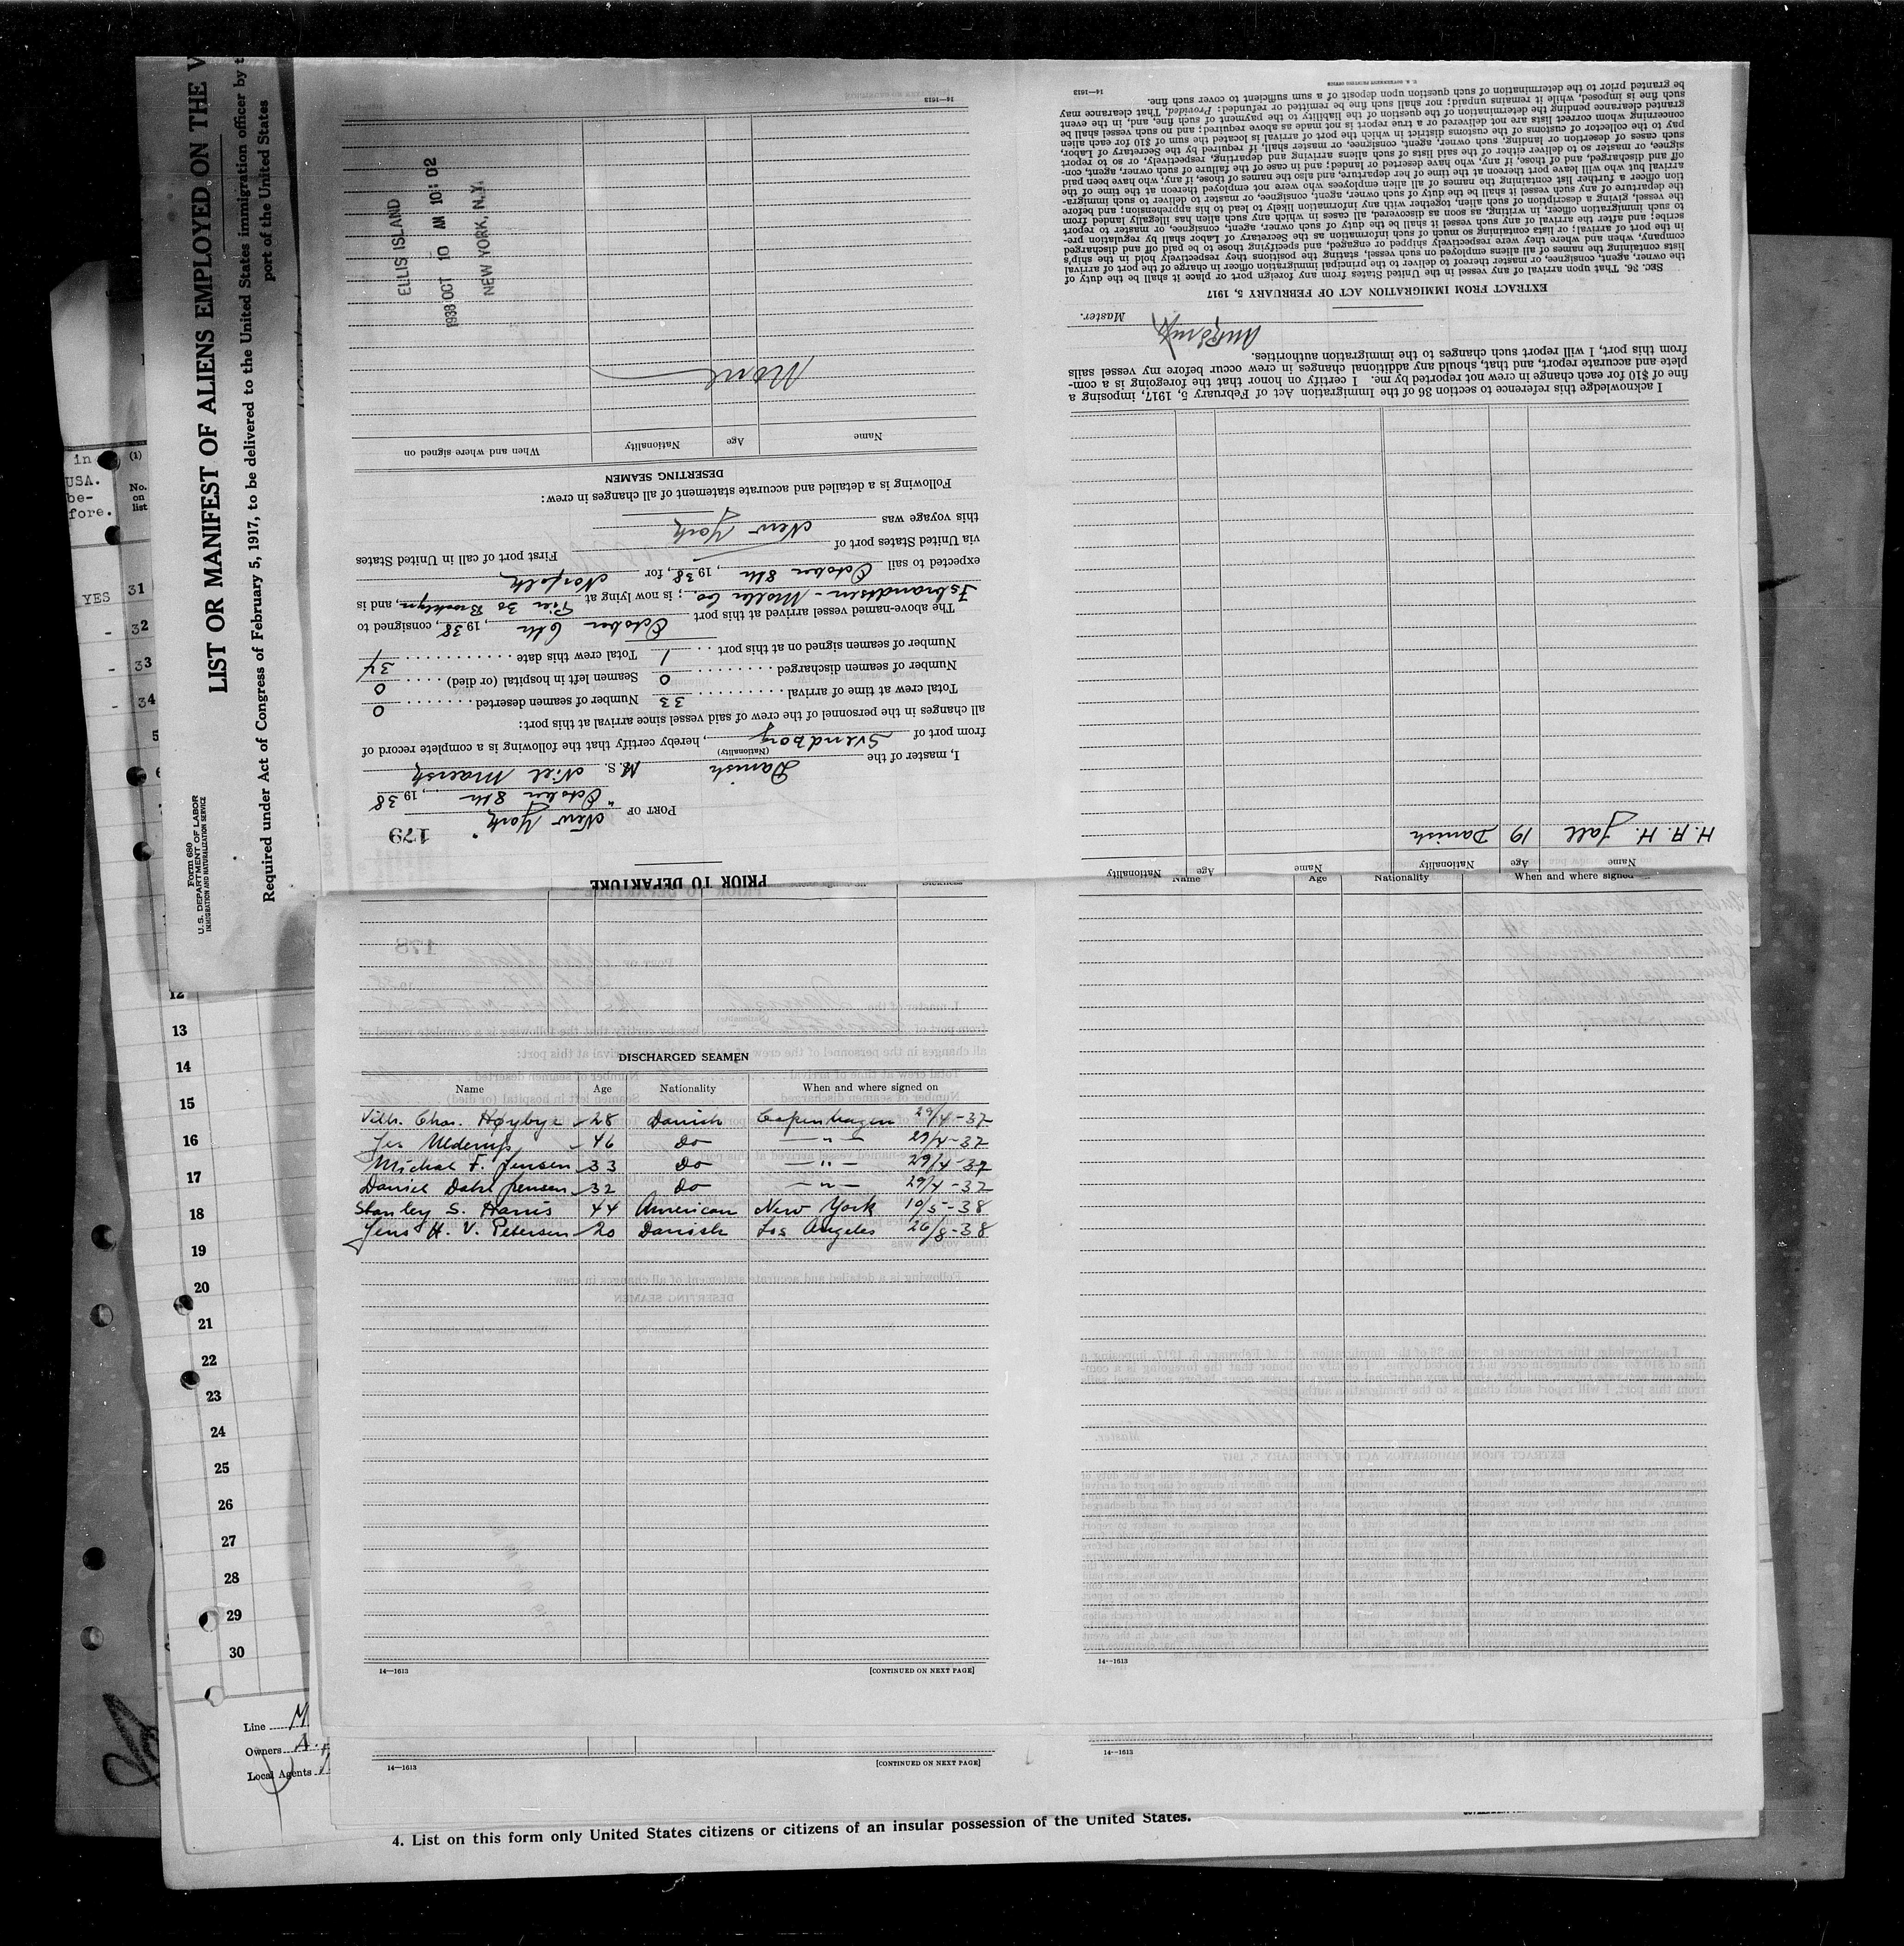 LIST OR MANIFEST OF ALIENS EMPLOYED ON THE V
Required under Act of Congress of February 5, 1917, to be delivered to the United States immigration officer by t
port of the United States
Form 680
U. S. DEPARTMENT OF LABOR
IMMIGRATION AND NATURALIZATION SERVICE
in
USA.
be-
fore.
(1)
No.
on
list
YES 31
- 32
- 33
- 34
5
6
7
8
12
13
14
15
16
17
18
19
20
21
22
23
24
25
26
27
28
29
30
Line M
Owners A. P
Local Agents
PRIOR TO DEPARTURE
179
PORT OF New York
October 8th, 1938
I, master of the Danish M. S. Niel Maersk
(Nationality)
from port of Svendborg, hereby certify that the following is a complete record of
all changes in the personnel of the crew of said vessel since arrival at this port:
Total crew at time of arrival 33 Number of seamen deserted 0
Number of seamen discharged 0 Seamen left in hospital (or died) 0
Number of seamen signed on at this port 1 Total crew this date 34
The above-named vessel arrived at this port October 6th, 1938, consigned to
Isbrandtsen - Moller Co.; is now lying at Pier 30 Brooklyn, and is
expected to sail October 8th, 1938, for Norfolk
via United States port of First port of call in United States
this voyage was New York
Following is a detailed and accurate statement of all changes in crew:
DESERTING SEAMEN
Name Age Nationality When and where signed on
None
ELLIS ISLAND
1938 OCT 10 AM 10:02
NEW YORK, N.Y.
14—1613
Name Age Nationality Name Age Nationality
H. A. H. Fall 19 Danish
I acknowledge this reference to section 36 of the Immigration Act of February 5, 1917, imposing a
fine of $10 for each change in crew not reported by me. I certify on honor that the foregoing is a com-
plete and accurate report, and that, should any additional changes in crew occur before my vessel sails
from this port, I will report such changes to the immigration authorities.
Master.
EXTRACT FROM IMMIGRATION ACT OF FEBRUARY 5, 1917
SEC. 36. That upon arrival of any vessel in the United States from any foreign port or place it shall be the duty of
the owner, agent, consignee, or master thereof to deliver to the principal immigration officer in charge of the port of arrival
lists containing the names of all aliens employed on such vessel, stating the positions they respectively hold in the ship's
company, when and where they were respectively shipped or engaged, and specifying those to be paid off and discharged
in the port of arrival; or lists containing so much of such information as the Secretary of Labor shall by regulation pre-
scribe; and after the arrival of any such vessel it shall be the duty of such owner, agent, consignee, or master to report
to such immigration officer, in writing, as soon as discovered, all cases in which any such alien has illegally landed from
the vessel, giving a description of such alien, together with any information likely to lead to his apprehension; and before
the departure of any such vessel it shall be the duty of such owner, agent, consignee, or master to deliver to such immigra-
tion officer a further list containing the names of all alien employees who were not employed thereon at the time of the
arrival but who will leave port thereon at the time of her departure, and also the names of those, if any, who have been paid
off and discharged, and of those, if any, who have deserted or landed; and in case of the failure of such owner, agent, con-
signee, or master so to deliver either of the said lists of such aliens arriving and departing, respectively, or so to report
such cases of desertion or landing, such owner, agent, consignee, or master, shall, if required by the Secretary of Labor,
pay to the collector of customs of the customs district in which the port of arrival is located the sum of $10 for each alien
concerning whom correct lists are not delivered or a true report is not made as above required; and no such vessel shall be
granted clearance pending the determination of the question of the liability to the payment of such fine, and, in the event
such fine is imposed, while it remains unpaid; nor shall such fine be remitted or refunded: Provided, That clearance may
be granted prior to the determination of such question upon deposit of a sum sufficient to cover such fine.
14—1613
U. S. GOVERNMENT PRINTING OFFICE
DISCHARGED SEAMEN
Name Age Nationality When and where signed on
Vilh. Chas. Høybye 28 Danish Copenhagen 29/4-37
Jes Ulderup 46 Do — " — 29/4-37
Michal F. Jensen 33 Do — " — 29/4-37
Daniel Dahl Jensen 32 Do — " — 29/4-37
Stanley S. Harris 44 American New York 10/5-38
Jens H. V. Petersen 20 Danish Los Angeles 26/8-38
14—1613 [CONTINUED ON NEXT PAGE]
Name Age Nationality When and where signed
14—1613
14—1613 [CONTINUED ON NEXT PAGE]
14—1613
4. List on this form only United States citizens or citizens of an insular possession of the United States.